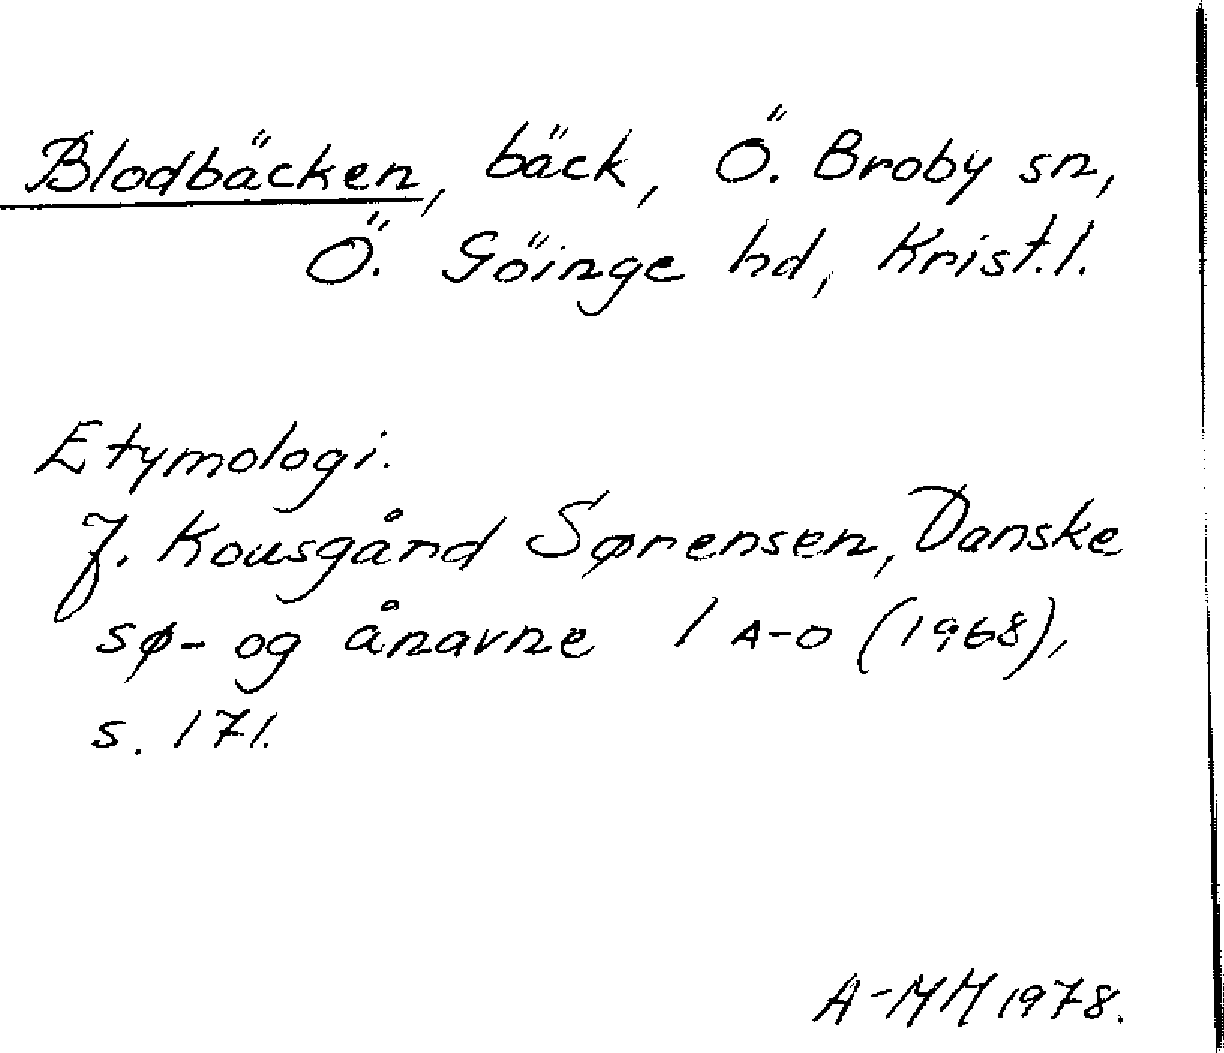 Blodbäcken, bäck, Ö. Broby sn,
Ö. Göinge hd, Krist.l.
Etymologi.
J. Kousgård Sørensen, Danske
sø- og ånavne 1 A-O (1968),
s. 171.
A-MM 1978.